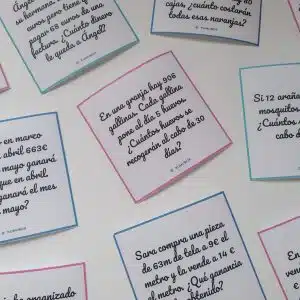 Ángel
su herman
euros pero tiene qu
pagar 63 euros de una
factura. ¿Cuánto dinero
le queda a Ángel?
cajas, ¿cuánto costarán
todas esas naranjas?
En una granja hay 906
gallinas. Cada gallina
pone al día 5 huevos.
¿Cuántos huevos se
recogerán al cabo de 30
días?
Si 12 araña
mosquitos
¿Cuántos
cabo d
en marzo
abril 663€
mayo ganará
que en abril
ganará el mes
mayo?
Sara compra una pieza
de 63m de tela a 9€ el
metro y la vende a 14 €
el metro. ¿Qué ganancia
obtenido?
organizado
En una